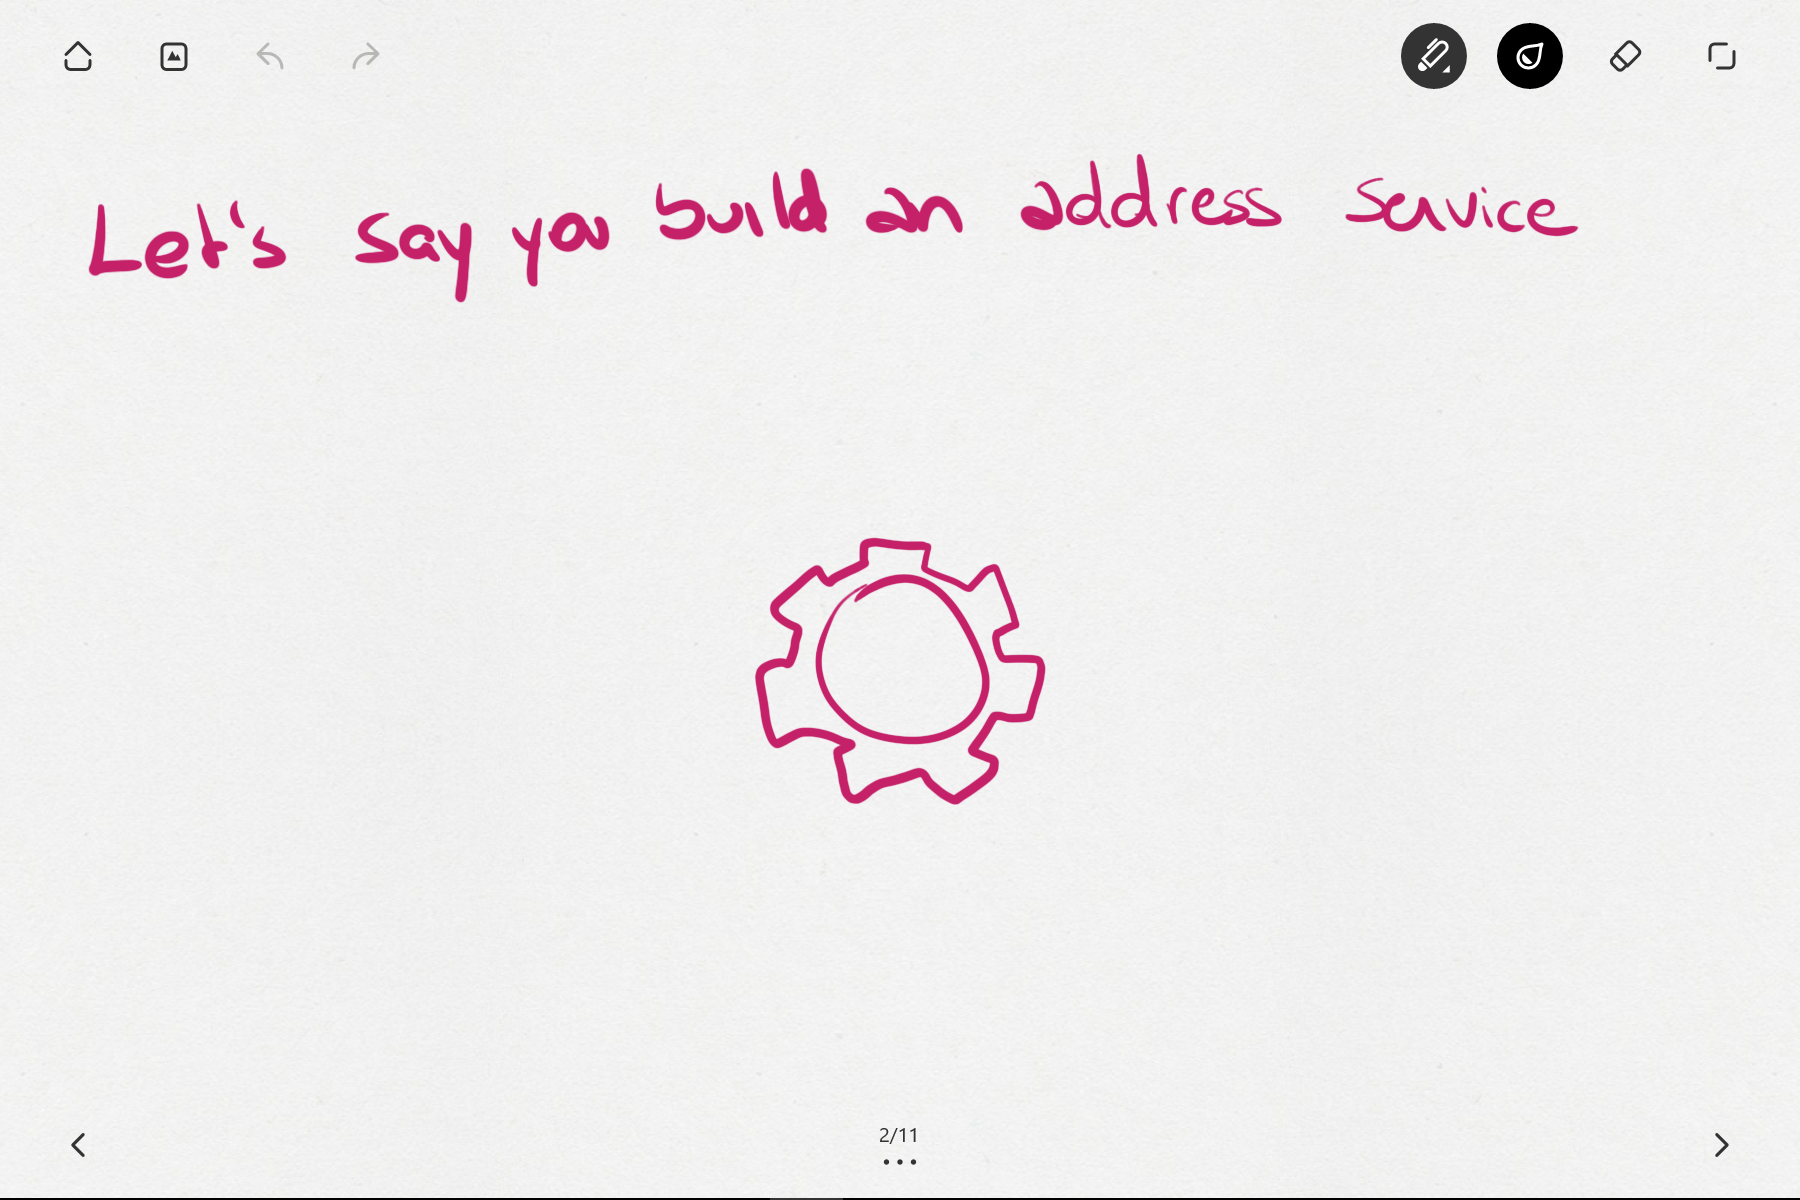 Let's say you build an address service
2/11